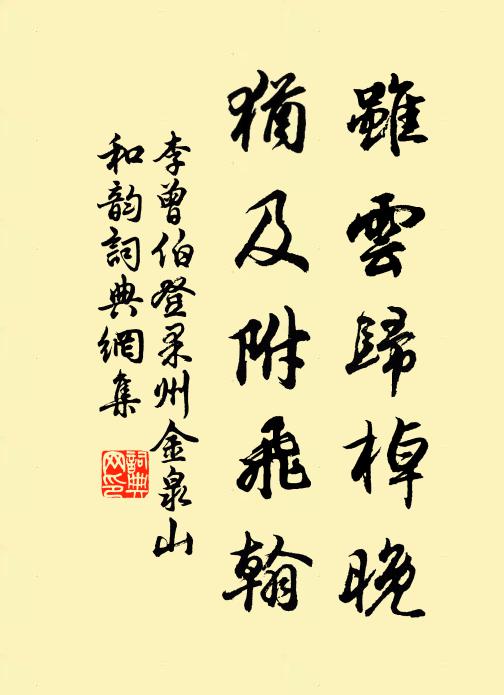 雖雲歸棹晚
猶及附飛翰
李曾伯登果州金泉山
和韵詞典網集
詞典网印